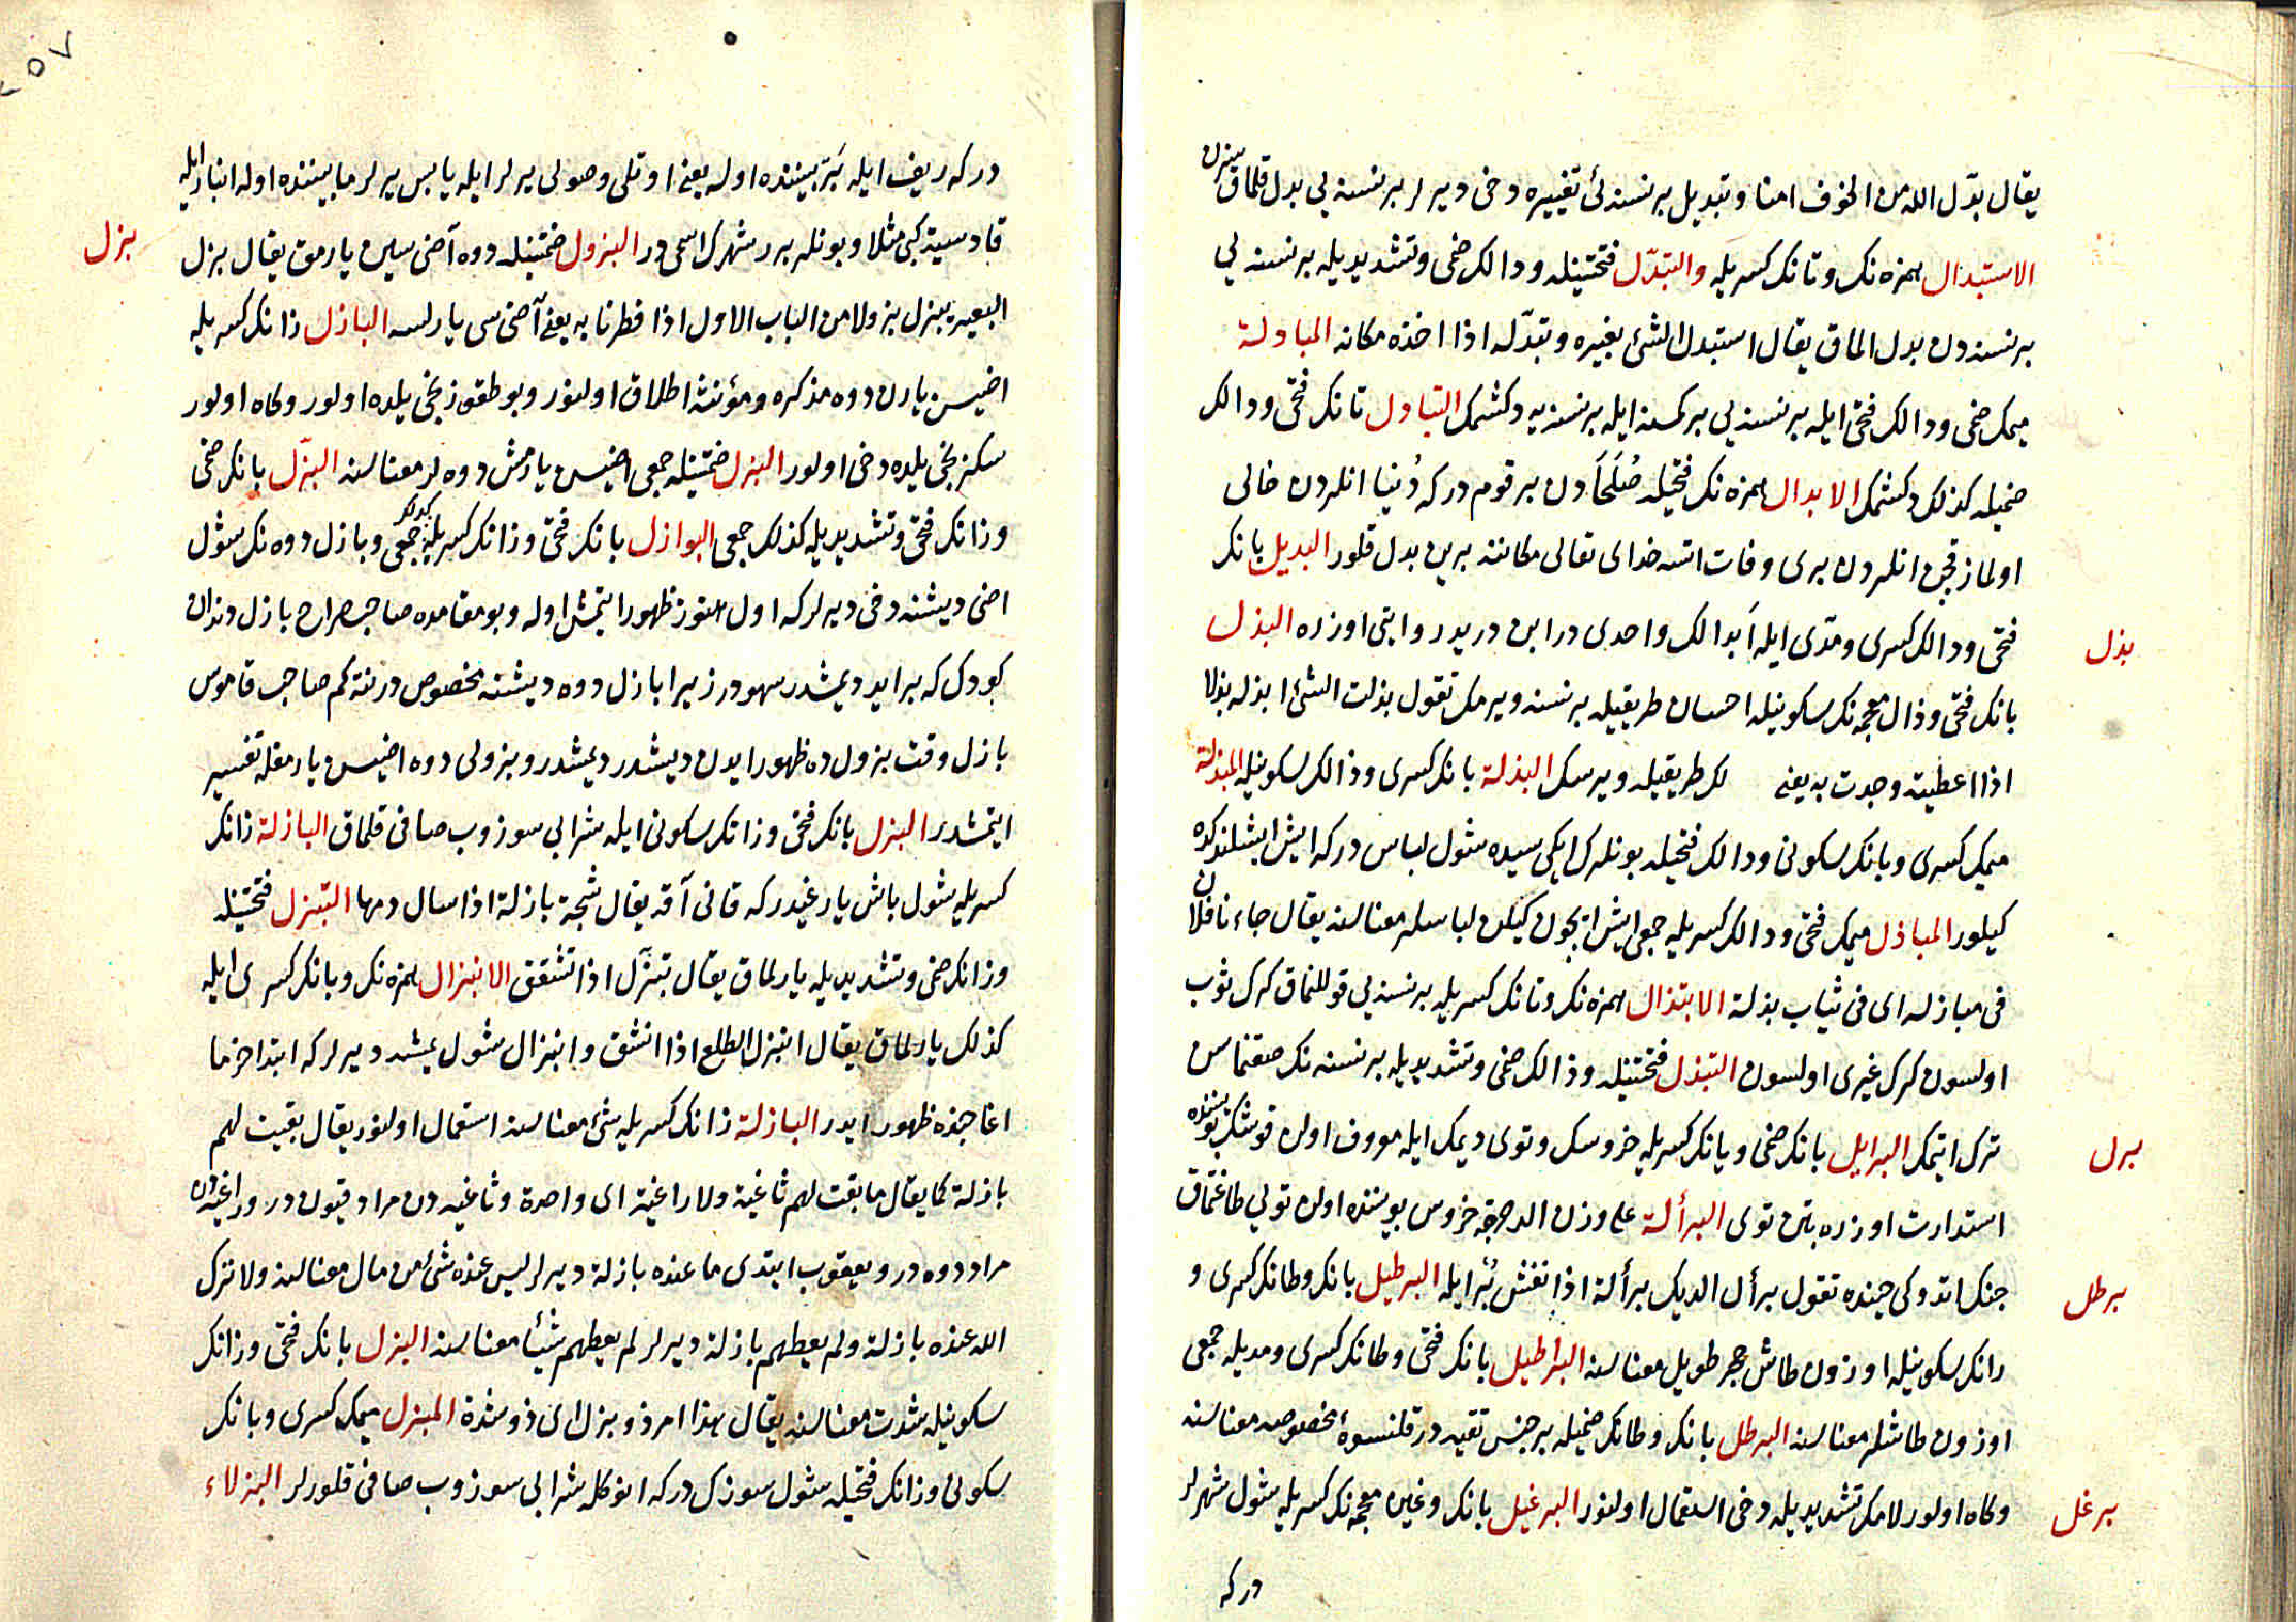 يقال بدّل الله من الخوف امنا وتبديل بر نسنه‌ئ تغييره دخى ديرلر بر نسنه‌يى بدل قلماق
الاستبدال همزه‌نك وتانك كسريله والتبدّل فتحتينله ودالك ضمى وتشديديله بر نسنه‌يى
بر نسنه‌دن بدل الماق يقال استبدل الشئ بغيره وتبدّله اذا اخذه مكانه المبادلة
ميمك ضمى ودالك فتحى ايله بر نسنه‌يى بر كسنه ايله بر نسنه‌يه دكشمك التبادل تانك فتحى ودالك
ضميله كذلك دكشمك الابدال همزه‌نك فتحيله صُلَحَادن بر قوم دركه دُنيا انلردن خالى
اولماز قچن انلردن برى وفات اتسه خداى تعالى مكاننه برين بدل قلور البديل بانك
بذل
فتحى ودالك كسرى ومدّى ايله اَبدالك واحدى در ابن دريد روايتى اوزره البذل
بانك فتحى وذال معجمه‌نك سكونيله احسان طريقيله بر نسنه ويرمك تقول بذلت الشئ ابذله بذلا
اذا اعطيته وجدت به يعنى لك طريقيله ويرسك البذلة بانك كسرى وذالك سكونيله المبذلة
ميمك كسرى وبانك سكونى ودالك فتحيله بونلرك ايكيسيده شول لباس دركه ايش ايشلندكده
كيلور المباذل ميمك فتحى ودالك كسريله جمعى ايش ايچون كيلن لباسلر معناسنه يقال جاءنا فلان
فى مباذله اى فى ثياب بذلة الابتذال همزه‌نك وتانك كسريله بر نسنه‌يى قوللنماق كرك ثوب
اولسون كرك غيرى اولسون التبذل فتحتينله وذالك ضمى وتشديديله بر نسنه‌نك صقنماسن
برل
ترك اتمك البرايل بانك ضمى ويانك كسريله خروسك وتوى ديمك ايله معروف اولن قوشك بوينده
استدارت اوزره بتن توى البرألة على وزن الدحرجة خروس بوينده اولن تويى طاغتماق
برطل
جنك اتدوكى حينده تقول برأل الديك برألة اذا نفش بُرَايله البرطيل بانك وطانك كسرى و
رانك سكونيله اوزون طاش حجر طويل معناسنه البراطيل بانك فتحى وطانك كسرى ومديله جمعى
اوزون طاشلر معناسنه البرطل بانك وطانك ضميله بر جنس تقيه در قلنسوهٔ مخصوصه معناسنه
برغل
وكاه اولور لامك تشديديله دخى استعمال اولنور البرغيل بانك وغين معجمه‌نك كسريله شول شهرلر
دركه
دركه ريف ايله بَرّ بيننده اوله يعنى اوتلى وصولى يرلر ايله يابس يرلر مابيننده اوله انبار ايله
بزل
قادسيه كبى مثلا وبونلر برر شهرك اسمى در البزول ضمتينله دوه آضى سين يارمق يقال بزل
البعير يبزل بزولا من الباب الاول اذا فطر نابه يعنى آضيسى يارلسه البازل زانك كسريله
اضيسن يارن دوه مذكره ومؤنثه اطلاق اولنور وبو طقوزنجى يلده اولور وكاه اولور
سكزنجى يلده دخى اولور البزل ضمتينله جمعى اضيسن يارمش دوه لر معناسنه البزّل بانك ضمى
وزانك فتحى وتشديديله كذلك جمعى البوازل بانك فتحى وزانك كسريله جمعى وبازل دوه‌نك شول
اضى ديشنه دخى ديرلركه اول هنوز ظهور ايتمش اوله وبو مقامده صاحب صراح بازل دندان
كودك كه برايد ديمشدر سهودر زيرا بازل دوه ديشنه مخصوص درنته‌كم صاحب قاموس
بازل وقت بزولده ظهور ايدن ديشدر ديمشدر وبزولى دوه اضيسن يارمغله تفسير
ايتمشدر البزل بانك فتحى وزانك سكونى ايله شرابى سوزوب صافى قلماق البازلة زانك
كسريله شول باش يارغيدركه قانى آقه يقال شجة بازلة اذا سال دمها التبزل فتحتينله
وزانك ضمى وتشديديله يارلماق يقال تبزّل اذا تشقق الانبزال همزه‌نك وبانك كسرى ايله
كذلك يارلماق يقال انبزل الطلع اذا انشق وانبزال شول يمشه ديرلركه ابتدا خرما
اغاجنده ظهور ايدر البازلة زانك كسريله شئ معناسنه استعمال اولنور يقال بقيت لهم
بازلة كما يقال ما بقت لهم ثاغية ولا راغية اى واحدة وثاغيه‌دن مراد قيون در وراغيه‌دن
مراد دوه در ويعقوب ايتدى ما عنده بازلة ديرلر ليس عنده شئ من مال معناسنه ولا ترك
الله عنده بازلة ولم يعطهم بازلة ديرلر لم يعطهم شيئا معناسنه البزل بانك فتحى وزانك
سكونيله شدت معناسنه يقال هذا امر ذو بزل اى ذو شدة المبزل ميمك كسرى وبانك
سكونى وزانك فتحيله شول سوزك دركه انوكله شرابى سوزوب صافى قلورلر البزلاء